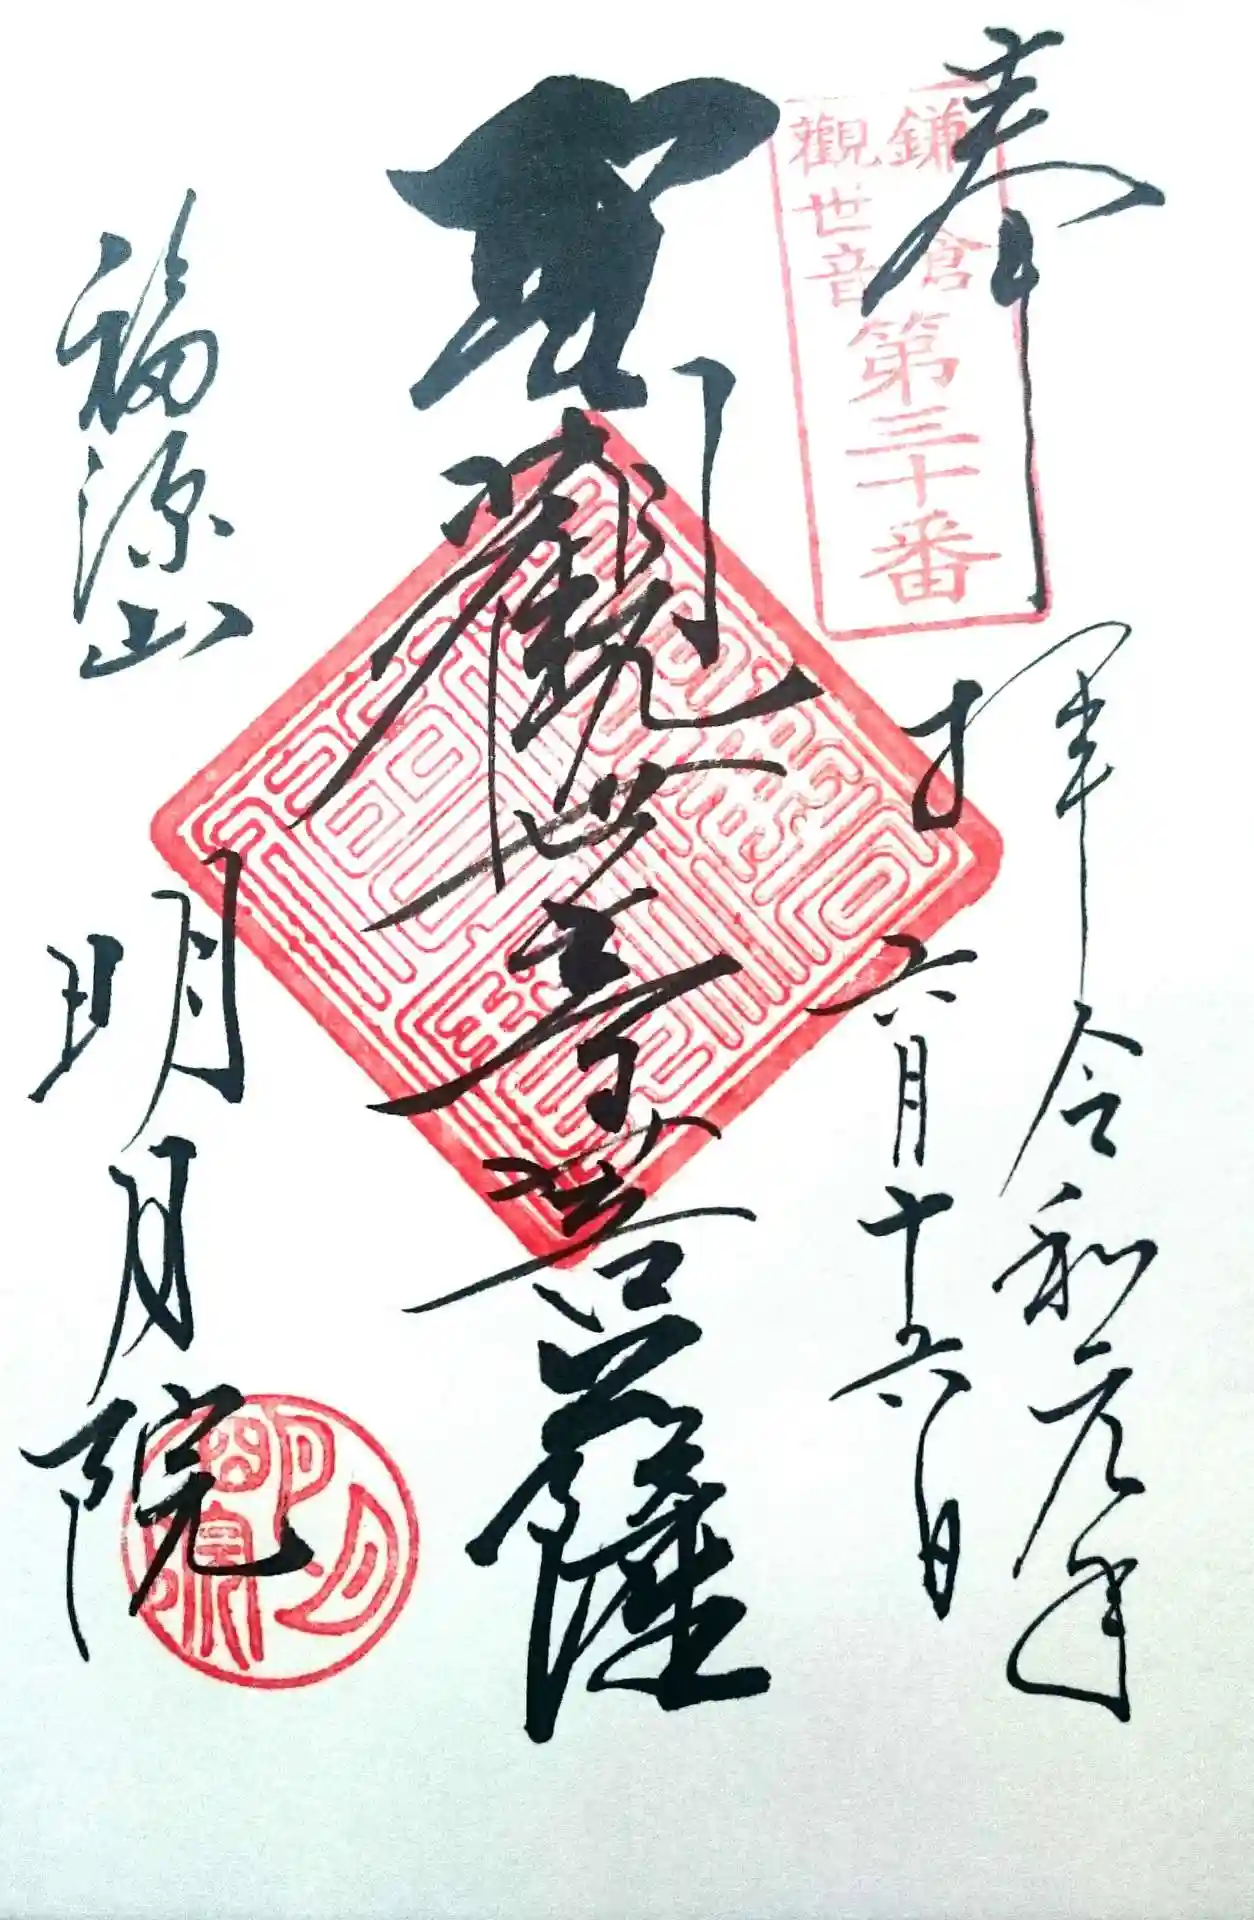 奉拝 令和元年
六月十六日
鎌倉
觀世音
第三十番
聖觀世音菩薩
福源山
明月院